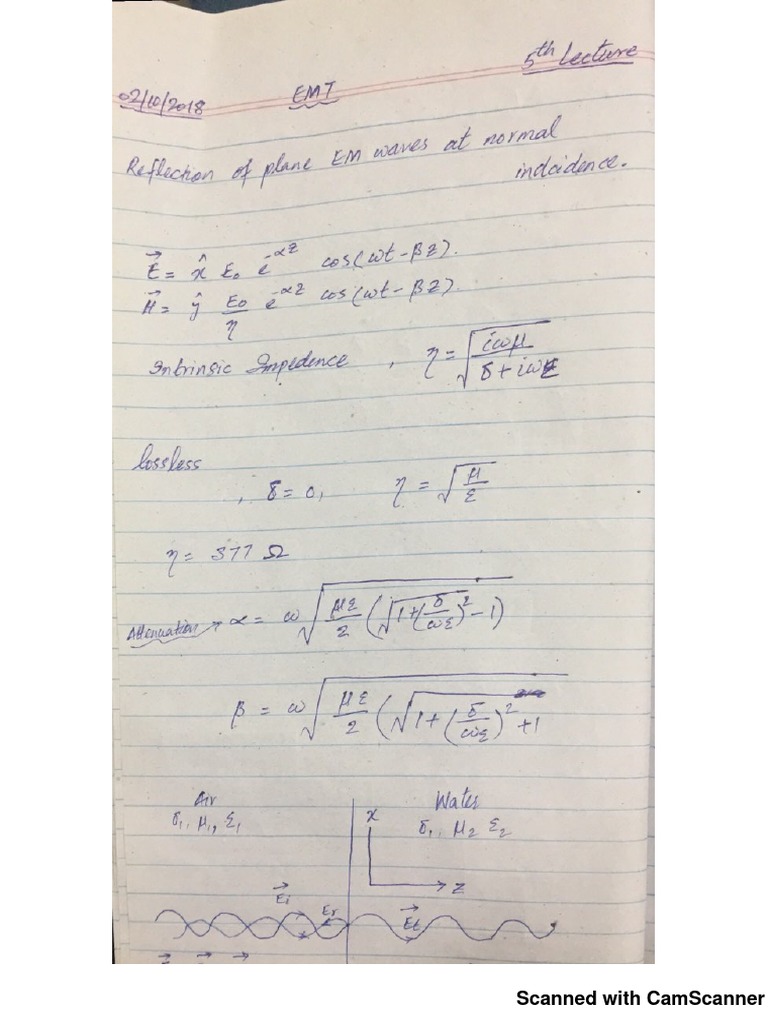 5th Lecture
02/10/2018 EMT
Reflection of plane EM waves at normal
indcidence.
E⃗ = x̂ E₀ e^-αz cos(ωt - βz).
H⃗ = ŷ E₀/η e^-αz cos(ωt - βz).
Intrinsic Impedence , η = √(iωμ / (σ + iωε))
lossless
, σ = 0, η = √(μ/ε)
η = 377 Ω
Attenuation → α = ω √(με/2 (√(1+(σ/ωε)²) - 1)
β = ω √(με/2 (√(1 + (σ/ωε)²) + 1
Air Water
σ₁, μ₁, ε₁ x σ₁, μ₂ ε₂
z
E⃗i Er E⃗t
Scanned with CamScanner